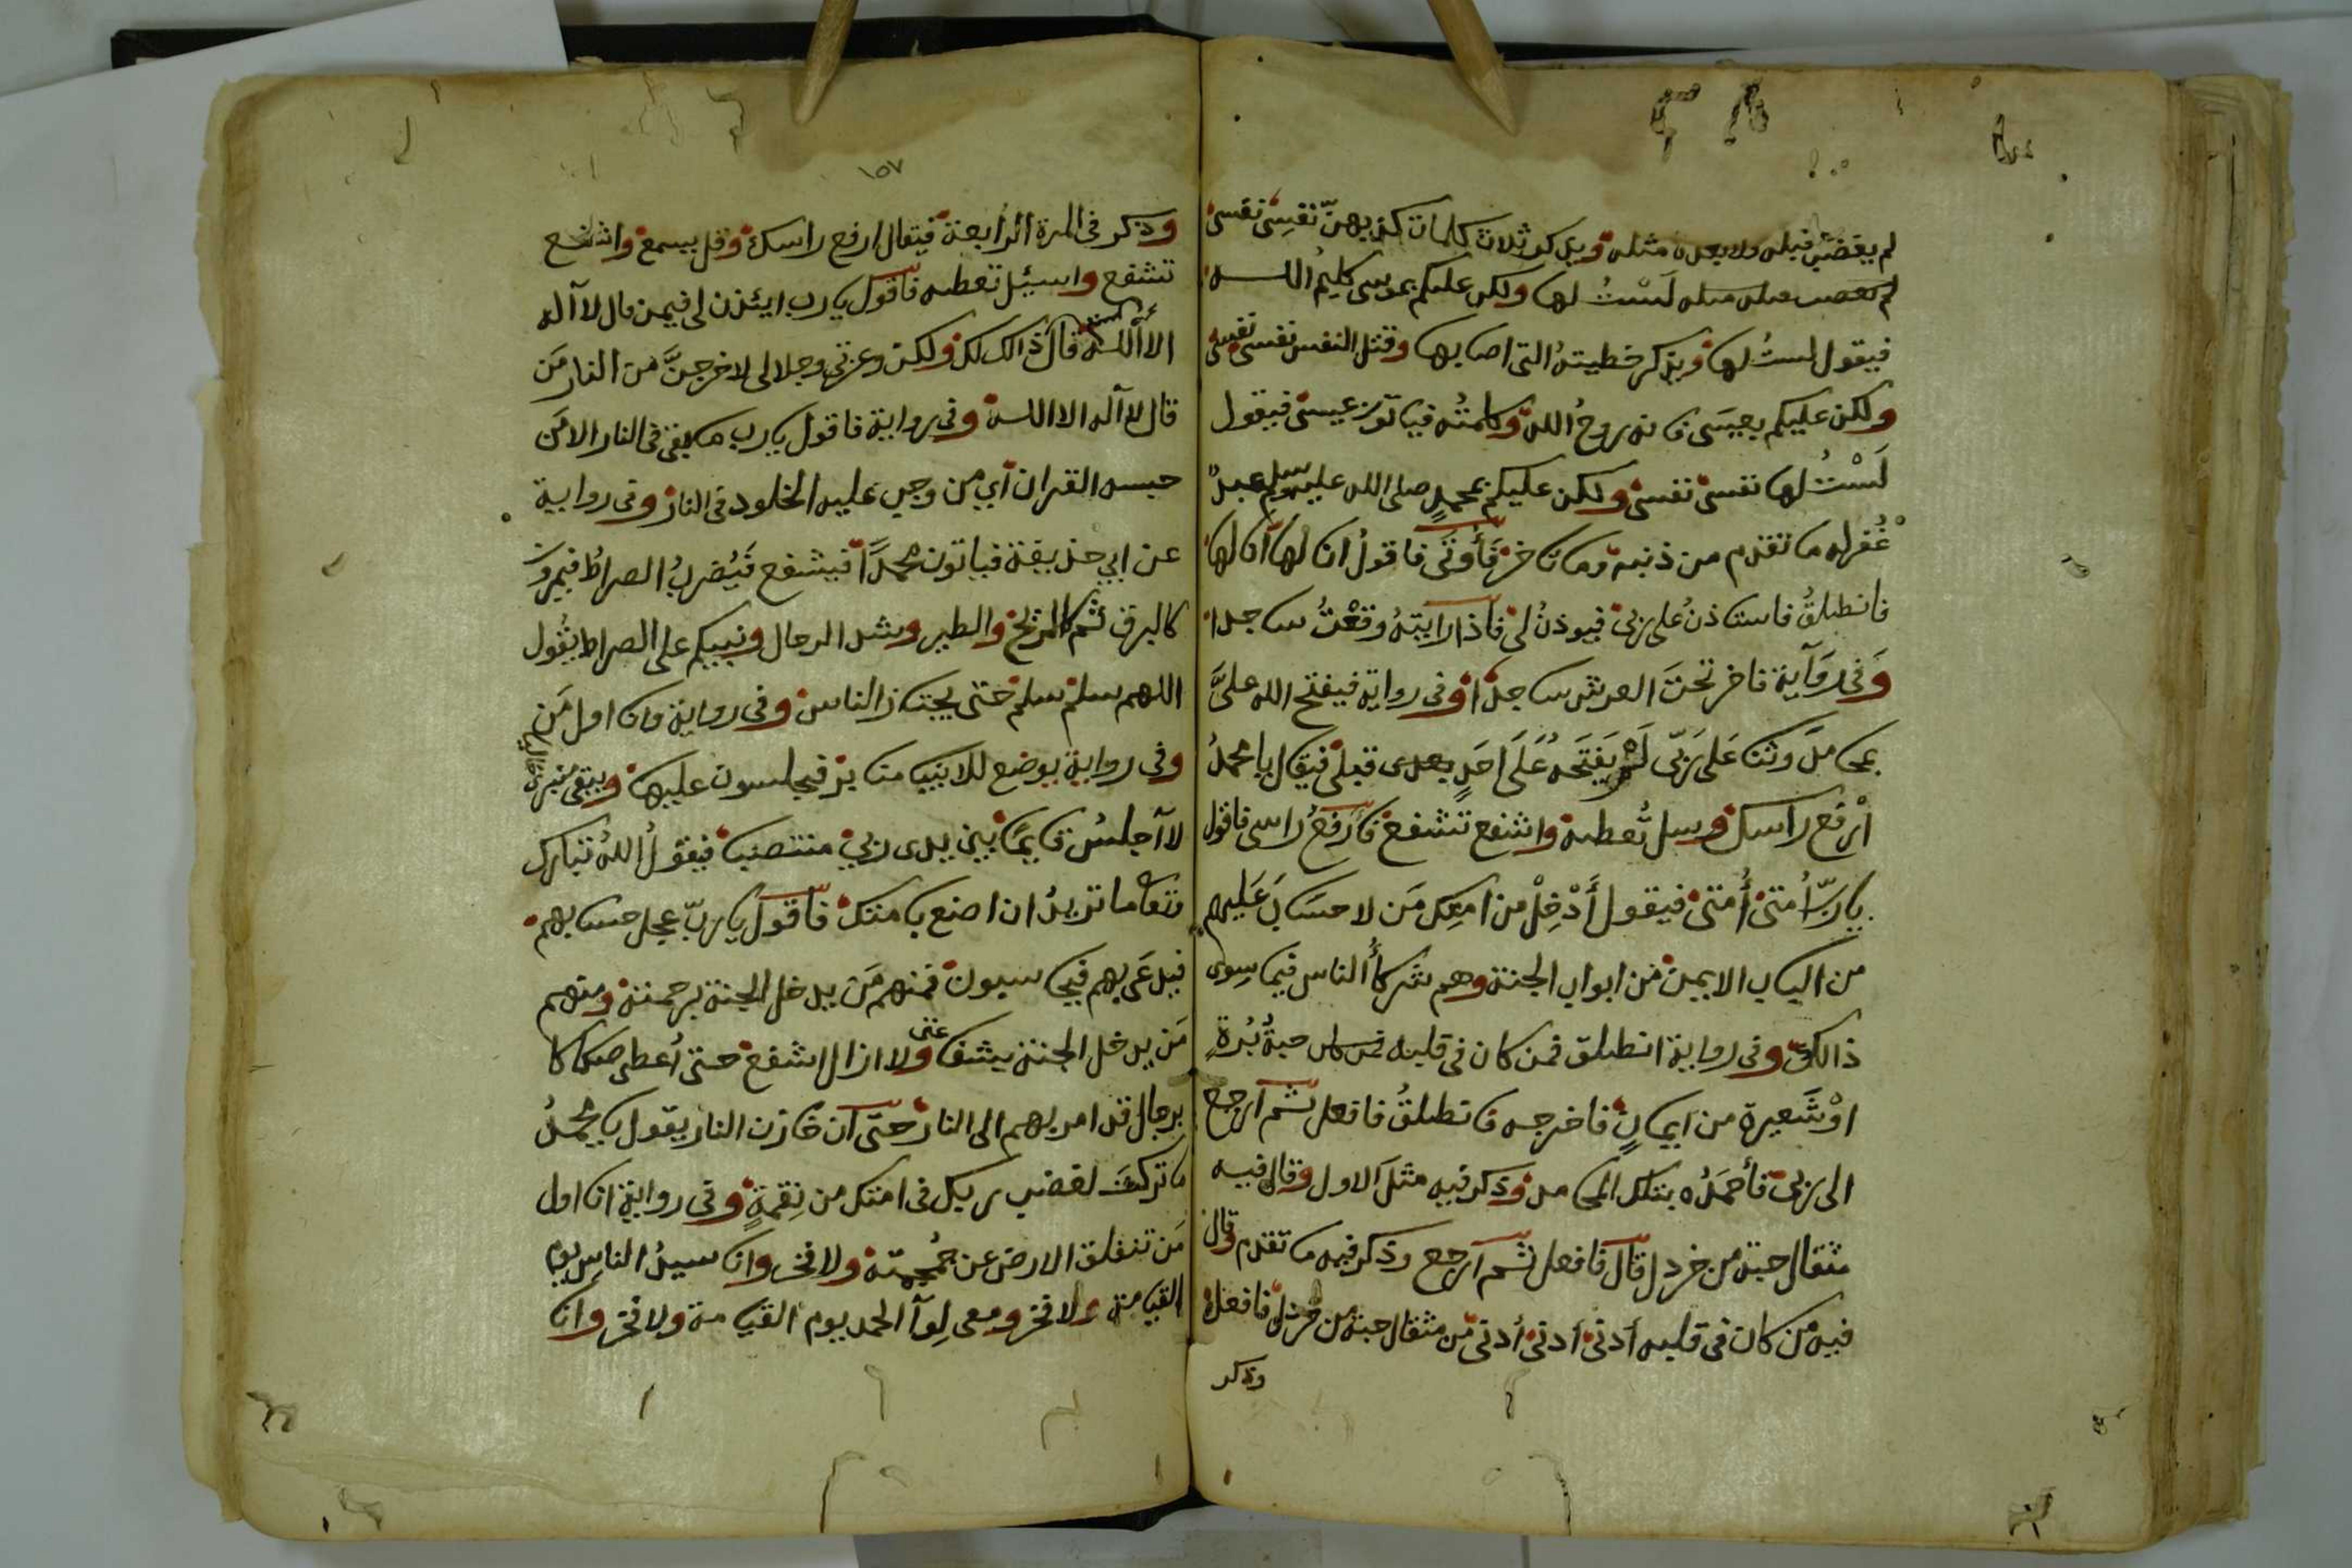 لم يغضب قبله ولا بعده مثله ويذكر ثلاث كلمات كذبهنّ نفسى نفسى
لَسْتُ لها ولكن عليكم بموسى كليمُ الله
فيقول لستُ لها ويذكر خطيتهُ التى اصابها وقتل النفس نفسى نفسى
ولكن عليكم بعيسَى فانه روحُ الله وكلمتُه فياتون عيسى فيقول
لَسْتُ لها نفسى نفسى ولكن عليكم بمحمدٍ صلى الله عليه وسلم عبدٌ
غُفرله ما تقدم من ذنبه وما تاخر فَأُوتَى فاقولُ انا لها انا لها
فانطلقُ فاستاذنُ على ربى فيوذنُ لى فاذا رايتهُ وقعْتُ ساجدا
وَفى رَوَاية فاخر تحتَ العرش ساجدًا وفى رواية فيفتح الله علىَّ
بمحامدَ وثنا عَلى رَبّى لَمْ يَفْتَحْهُ عَلَى احَدٍ بعدى قبلى فيقال يا محمدُ
ارْفع راسك وسل تُعطه واشفع تشفع فارفعُ راسى فاقول
يا ربّ اُمتى اُمتى فيقول أَدْخِلْ من امتِك مَن لا حسَابَ عَليهم
من الباب الايمن من ابواب الجنة وهم شركاُ الناس فيما سِوى
ذالك وفى رواية انطلق فمن كان فى قلبه حبةُ بُرةٍ
اوْ شَعيرة من ايمانٍ فاخرجه فانطلقُ فافعل ثم ارجع
الى ربى فأحمَدُه بتلك المحامد وذكر فيه مثلَ الاول وقال فيه
مثقال حبة من خردل قال فافعل ثم ارجع وذكر فيه ما تقدم وقال
فيه من كان فى قلبه أدنى أدنى أدنى من مثقال حبة من خردل فافعل
وذكر
١٥٧
وذكر فى المرة الرابعة فيقال ارفع راسك وقل يسمع واشفع
تشفع واسئل تعطه فاقول يا رب ايئذن لى فيمن قال لا آله
الا الله قال ذالك لك ولكن وعزتى وجلالى لاخرجنَّ من النار مَن
قال لا آله الا الله وفى رواية فاقول يا رب ما بقى فى النار الا مَن
حبسه القران أي من وجب عليه الخلود فى النار وفى رواية
عن ابى حذيفة فياتون محمدًا فيشفع فَيُضربُ الصراطُ فيمرون
كالبرق ثم كالريح والطير وشد الرجال ونبيكم على الصراط يقُول
اللهم سلم سلم حتى يجتاز الناس وفى رواية وانا اول مَن
وفى رواية يوضع للانبيا منابر فيجلسون عليها ويبقى منبرى
لا اجلسُ قايمًا بين يدى ربى منتصبا فيقولُ اللهُ تبارك
وتعا ما تريدُ ان اصنع بامتك فاقول يا ربّ عجل حسابهم
فيدعَى بهم فيحاسبون فمنهم مَن يدخل الجنة برحمته ومنهم
مَن يدخل الجنة بشفاعتى ولا ازال اشفع حتى اُعطى صكاكا
برجال قد امر بهم الى النار حتى ان خازن النار يقول يا محمدُ
ما تركت لغضب ربك فى امتك من نِقمةٍ وفى رواية انا اول
مَن تنفلق الارض عن جُمجمته ولا فخر وانا سيدُ الناس يوم
القيامة ولا فخر ومعى لِوآ الحمد يوم القيامة ولا فخر وانا